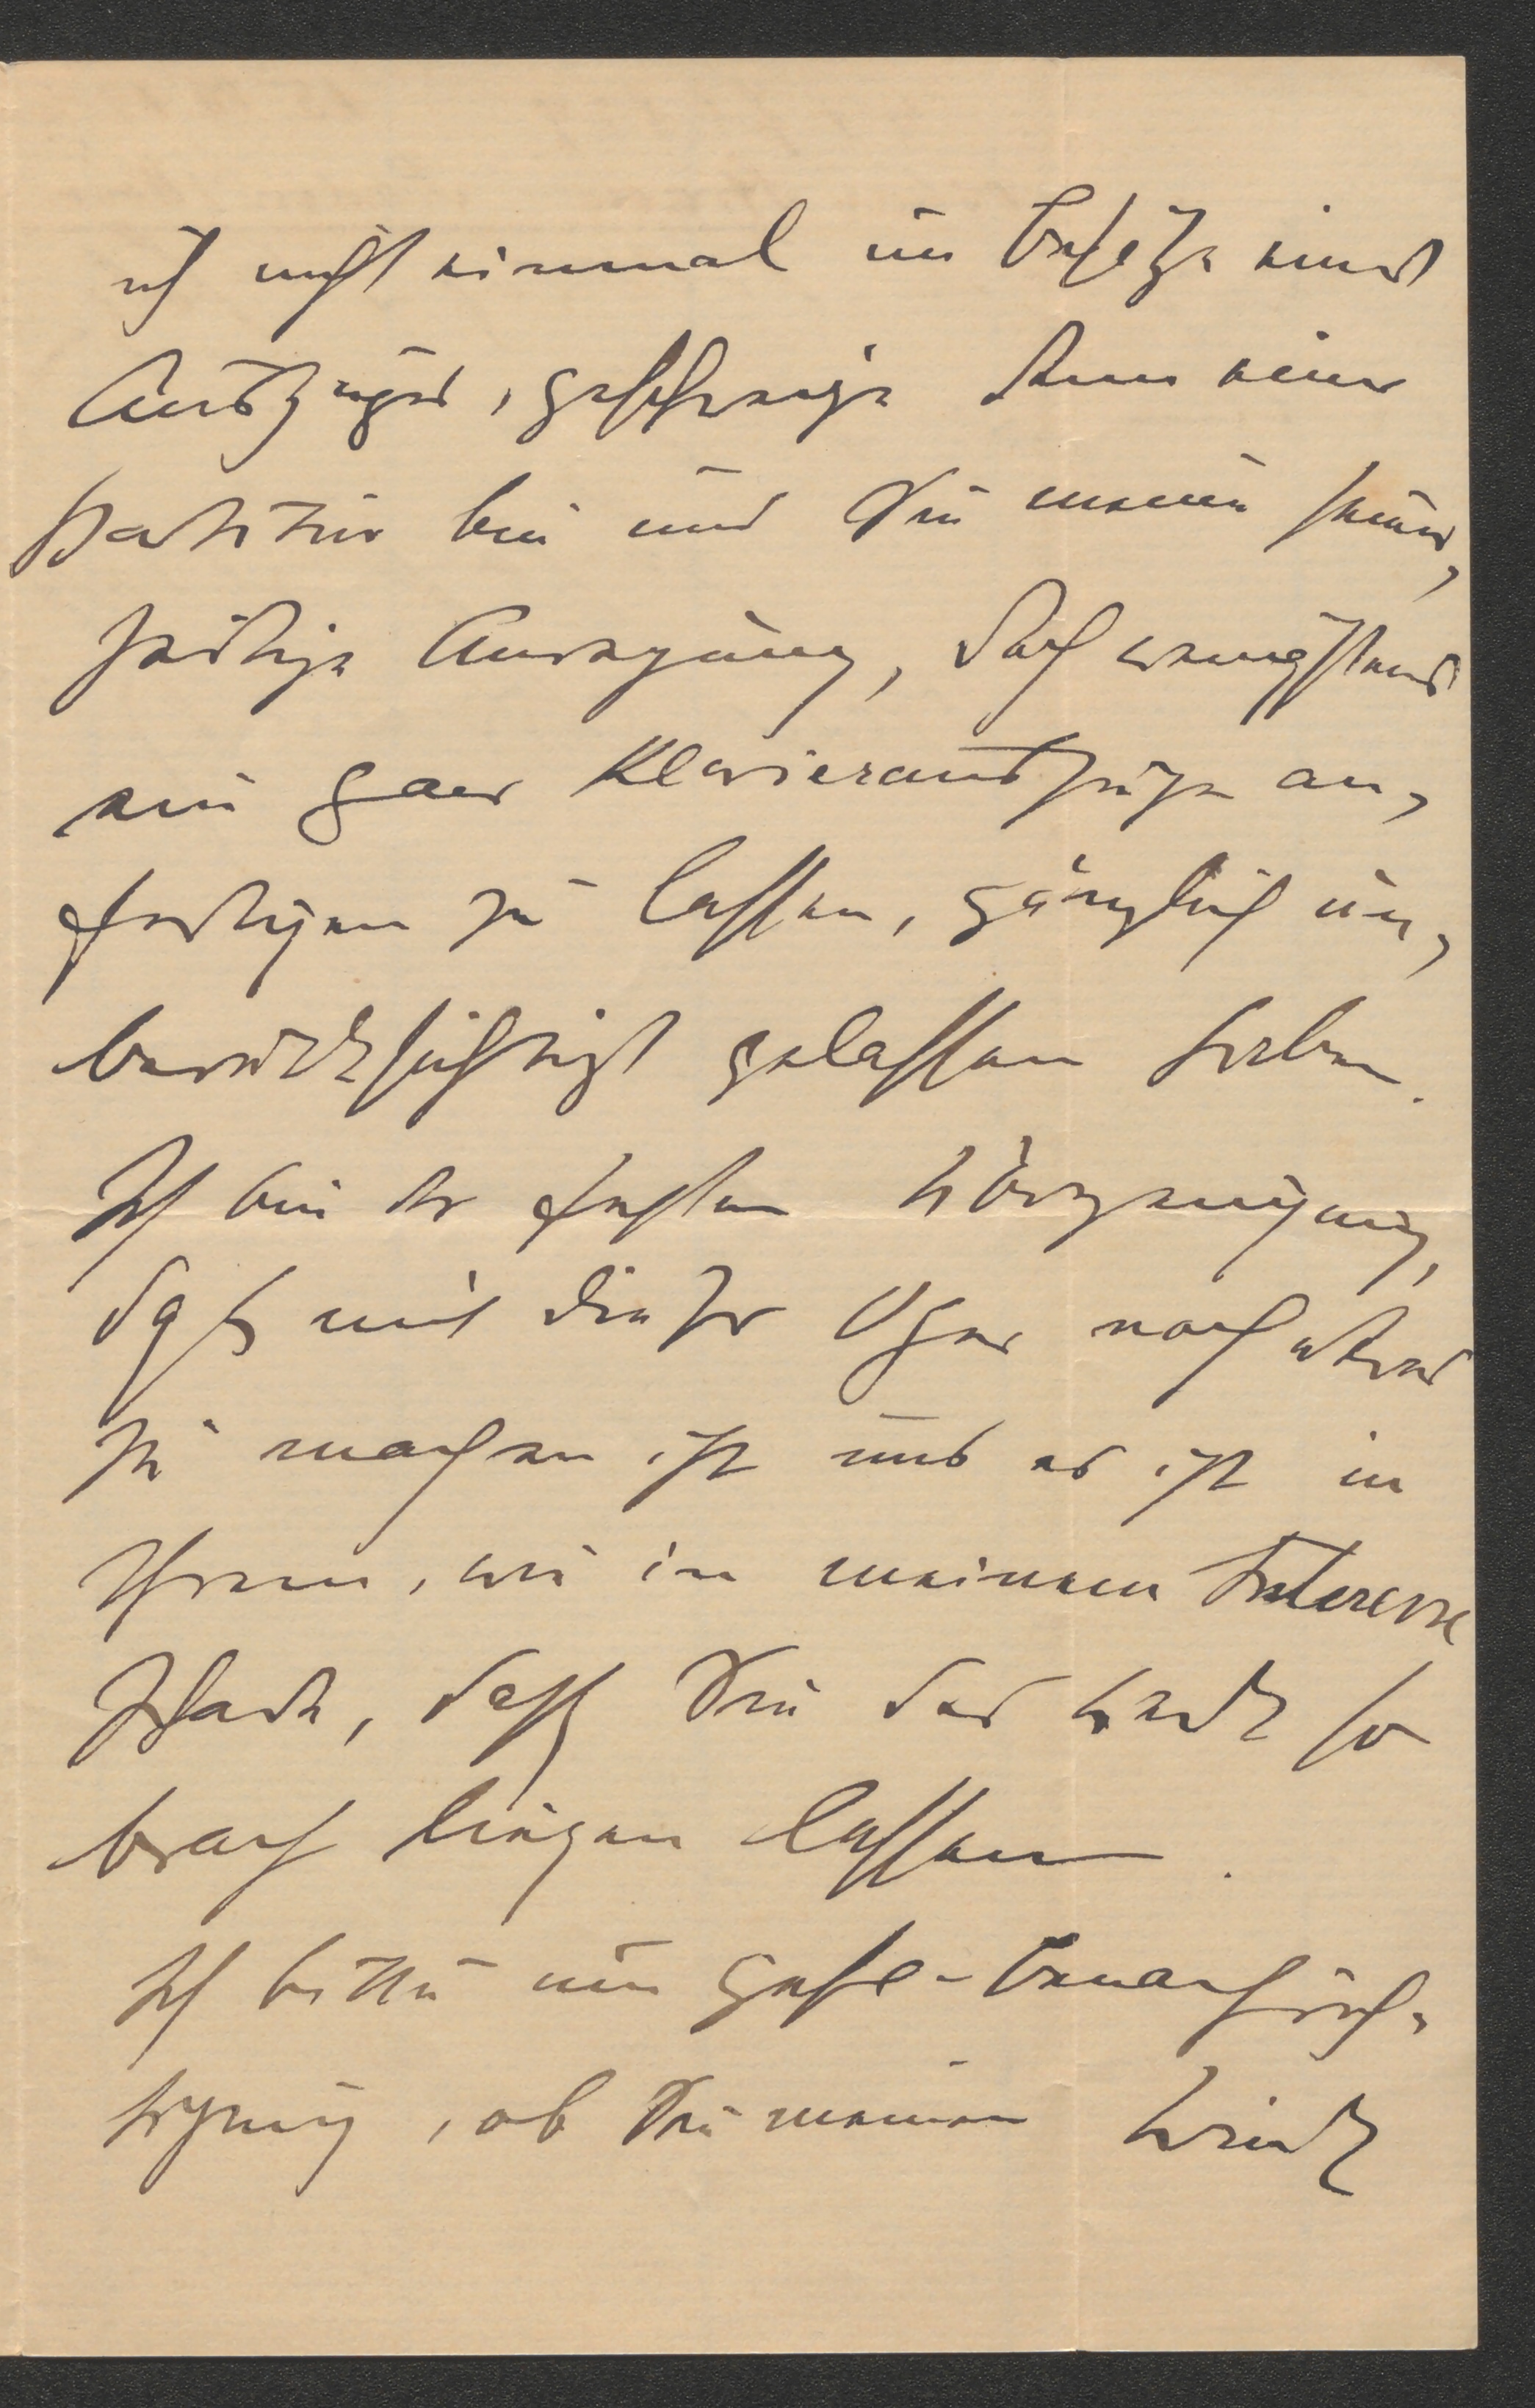 ich nicht einmal im Besitze eines
Auszuges, geschweige denn einer
Partitur bin und Sie meine seiner-
zeitige Anregung, doch wenigstens
ein paar Klavierauszüge an-
fertigen zu lassen, gänzlich un-
berücksichtigt gelassen haben.
Ich bin der festen Überzeugung,
daß mit dieser Oper noch etwas
zu machen ist und es ist in
Ihrem, wie in meinem Interesse
schade, daß Sie das Werk so
brach liegen lassen.
Ich bitte um gefl. Benachrich-
tigung, ob Sie meinen Wink